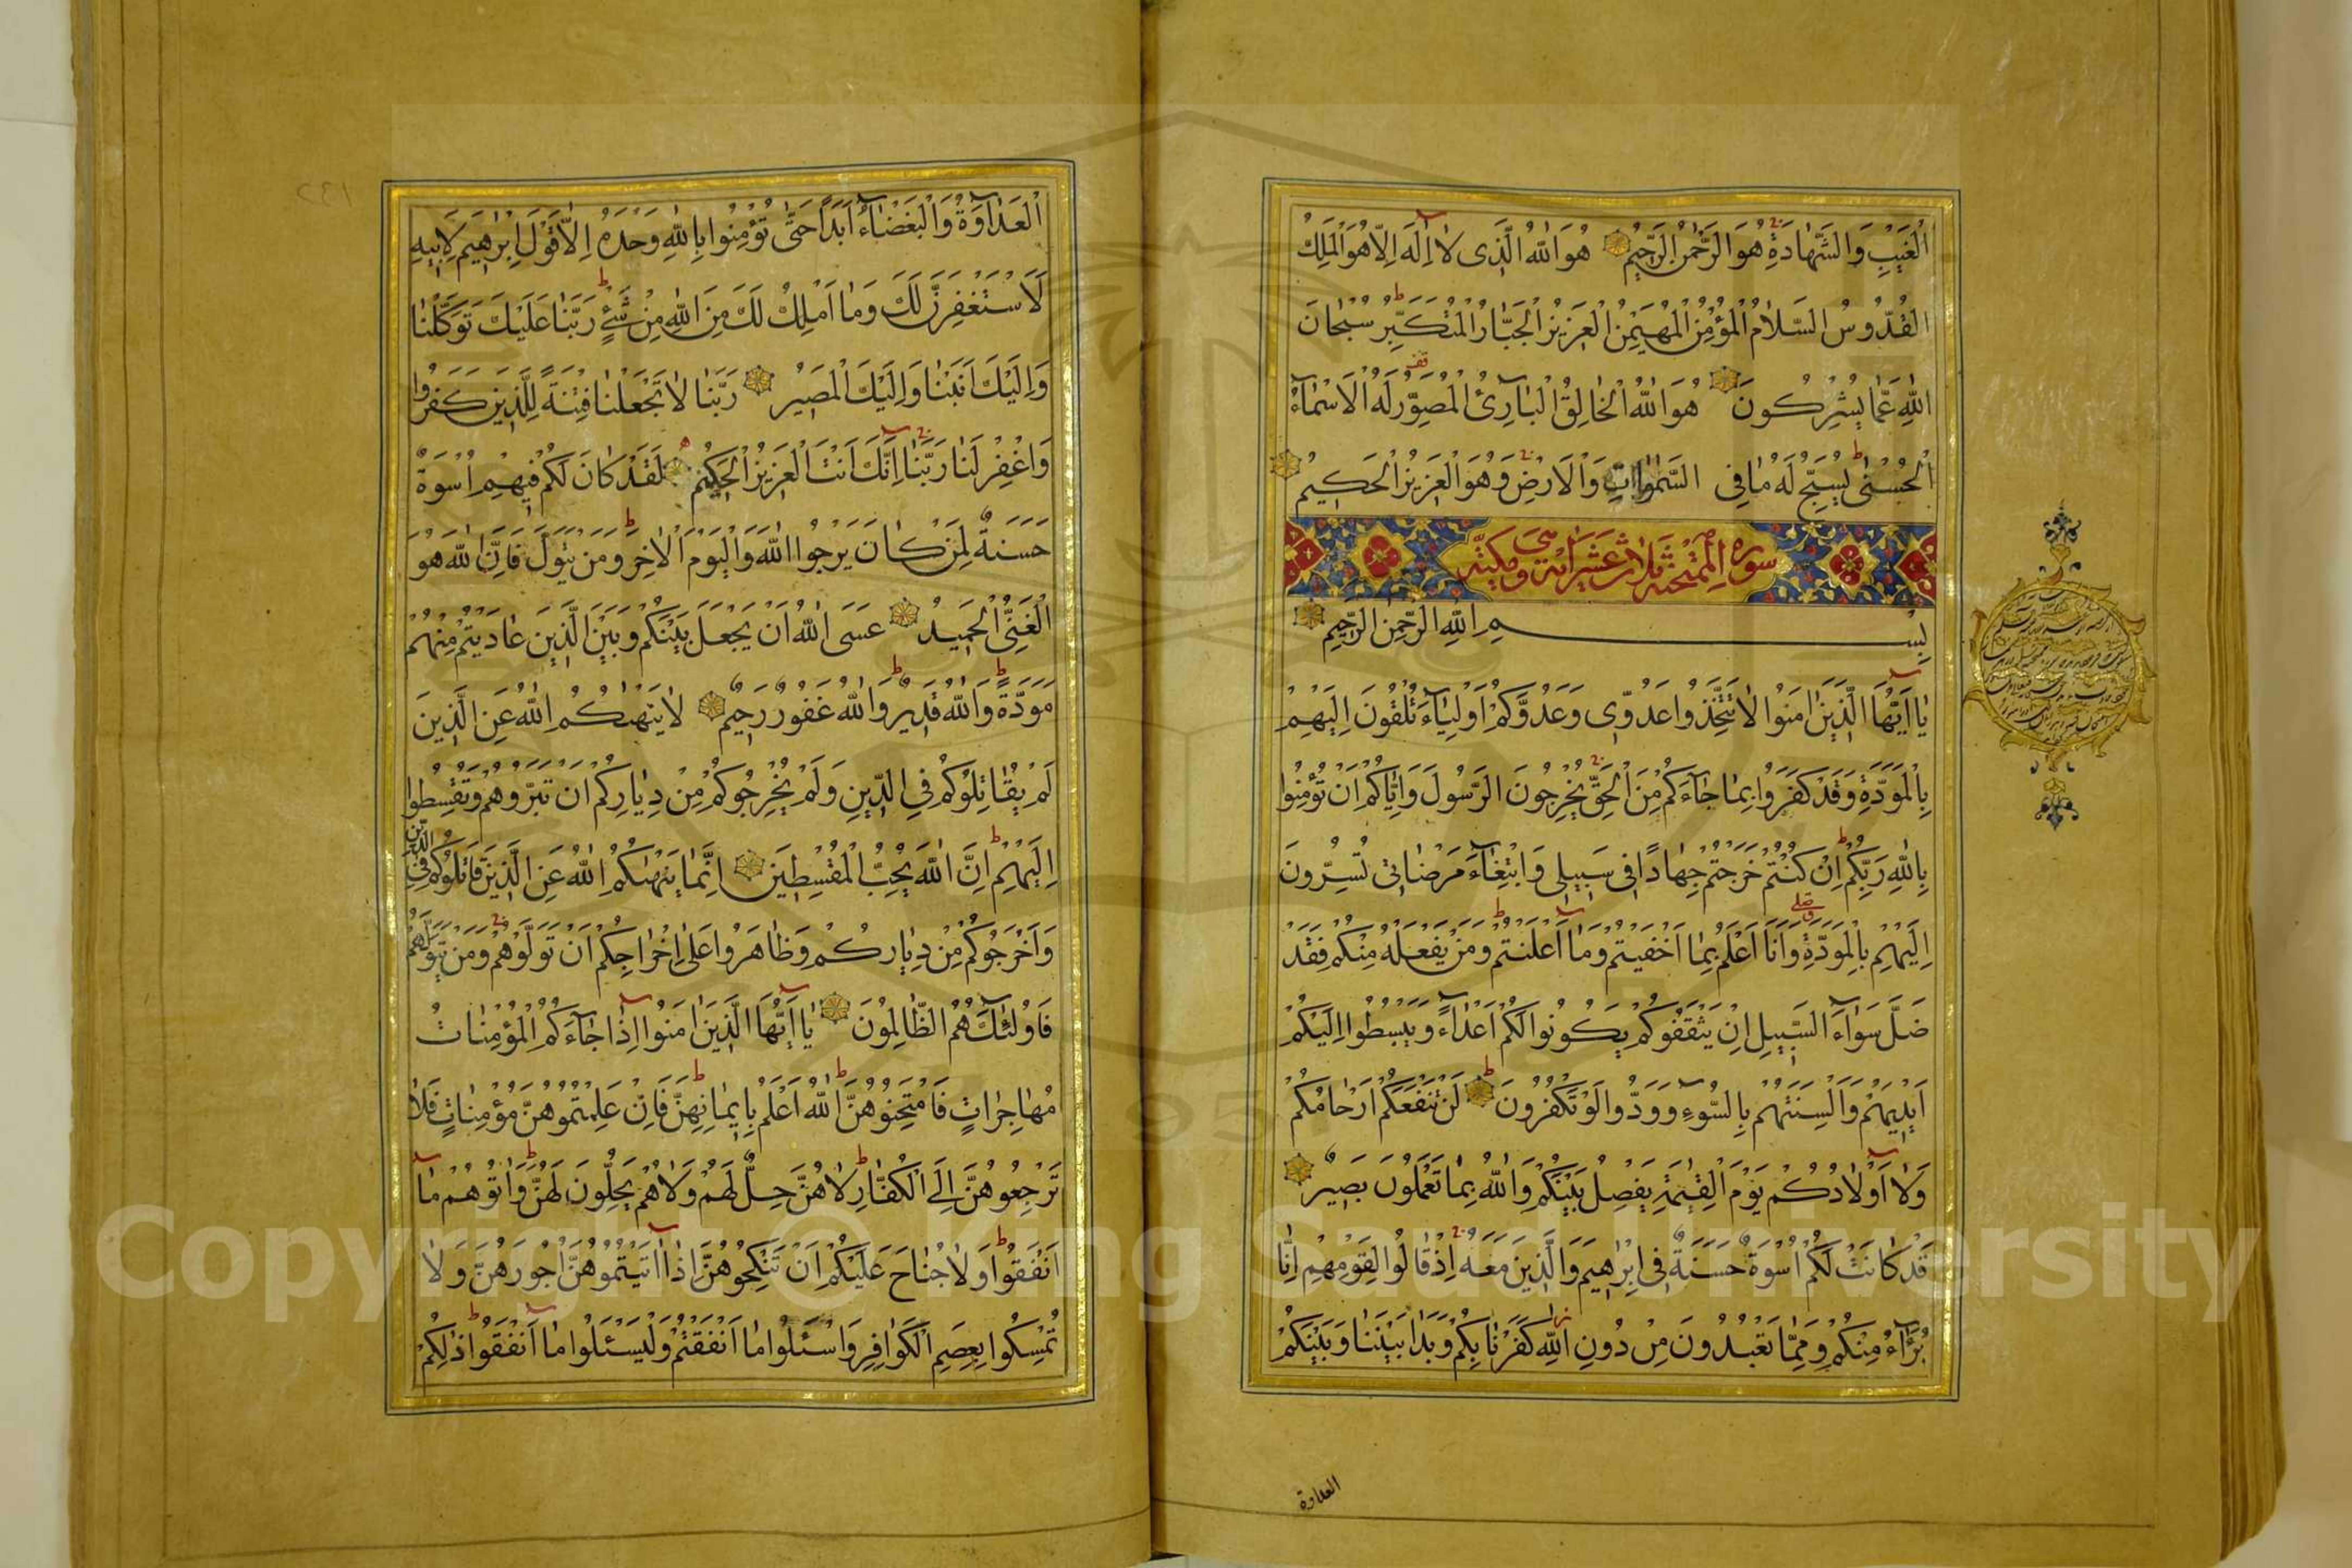 الْغَيْبِ وَالشَّهَادَةِ هُوَ الرَّحْمٰنُ الرَّحِيمُ هُوَ اللّٰهُ الَّذِى لَا اِلٰهَ اِلَّا هُوَ الْمَلِكُ
الْقُدُّوسُ السَّلَامُ الْمُؤْمِنُ الْمُهَيْمِنُ الْعَزِيزُ الْجَبَّارُ الْمُتَكَبِّرُ سُبْحَانَ
اللّٰهِ عَمَّا يُشْرِكُونَ هُوَ اللّٰهُ الْخَالِقُ الْبَارِئُ الْمُصَوِّرُ لَهُ الْاَسْمَاءُ
الْحُسْنٰى يُسَبِّحُ لَهُ مَا فِى السَّمٰوَاتِ وَالْاَرْضِ وَهُوَ الْعَزِيزُ الْحَكِيمُ
سورة الممتحنة ثلاث عشر اية وهى مكية
بِسْمِ اللّٰهِ الرَّحْمٰنِ الرَّحِيمِ
يَا اَيُّهَا الَّذِينَ اٰمَنُوا لَا تَتَّخِذُوا عَدُوِّى وَعَدُوَّكُمْ اَوْلِيَاءَ تُلْقُونَ اِلَيْهِمْ
بِالْمَوَدَّةِ وَقَدْ كَفَرُوا بِمَا جَاءَكُمْ مِنَ الْحَقِّ يُخْرِجُونَ الرَّسُولَ وَاِيَّاكُمْ اَنْ تُؤْمِنُوا
بِاللّٰهِ رَبِّكُمْ اِنْ كُنْتُمْ خَرَجْتُمْ جِهَادًا فِى سَبِيلِى وَابْتِغَاءَ مَرْضَاتِى تُسِرُّونَ
اِلَيْهِمْ بِالْمَوَدَّةِ وَاَنَا اَعْلَمُ بِمَا اَخْفَيْتُمْ وَمَا اَعْلَنْتُمْ وَمَنْ يَفْعَلْهُ مِنْكُمْ فَقَدْ
ضَلَّ سَوَاءَ السَّبِيلِ اِنْ يَثْقَفُوكُمْ يَكُونُوا لَكُمْ اَعْدَاءً وَيَبْسُطُوا اِلَيْكُمْ
اَيْدِيَهُمْ وَاَلْسِنَتَهُمْ بِالسُّوءِ وَوَدُّوا لَوْ تَكْفُرُونَ لَنْ تَنْفَعَكُمْ اَرْحَامُكُمْ
وَلَا اَوْلَادُكُمْ يَوْمَ الْقِيٰمَةِ يَفْصِلُ بَيْنَكُمْ وَاللّٰهُ بِمَا تَعْمَلُونَ بَصِيرٌ
قَدْ كَانَتْ لَكُمْ اُسْوَةٌ حَسَنَةٌ فِى اِبْرٰهِيمَ وَالَّذِينَ مَعَهُ اِذْ قَالُوا لِقَوْمِهِمْ اِنَّا
بُرَءَاءُ مِنْكُمْ وَمِمَّا تَعْبُدُونَ مِنْ دُونِ اللّٰهِ كَفَرْنَا بِكُمْ وَبَدَا بَيْنَنَا وَبَيْنَكُمُ
العداوة
الْعَدَاوَةُ وَالْبَغْضَاءُ اَبَدًا حَتّٰى تُؤْمِنُوا بِاللّٰهِ وَحْدَهُ اِلَّا قَوْلَ اِبْرٰهِيمَ لِاَبِيهِ
لَاَسْتَغْفِرَنَّ لَكَ وَمَا اَمْلِكُ لَكَ مِنَ اللّٰهِ مِنْ شَىْءٍ رَبَّنَا عَلَيْكَ تَوَكَّلْنَا
وَاِلَيْكَ اَنَبْنَا وَاِلَيْكَ الْمَصِيرُ رَبَّنَا لَا تَجْعَلْنَا فِتْنَةً لِلَّذِينَ كَفَرُوا
وَاغْفِرْ لَنَا رَبَّنَا اِنَّكَ اَنْتَ الْعَزِيزُ الْحَكِيمُ لَقَدْ كَانَ لَكُمْ فِيهِمْ اُسْوَةٌ
حَسَنَةٌ لِمَنْ كَانَ يَرْجُوا اللّٰهَ وَالْيَوْمَ الْاٰخِرَ وَمَنْ يَتَوَلَّ فَاِنَّ اللّٰهَ هُوَ
الْغَنِىُّ الْحَمِيدُ عَسَى اللّٰهُ اَنْ يَجْعَلَ بَيْنَكُمْ وَبَيْنَ الَّذِينَ عَادَيْتُمْ مِنْهُمْ
مَوَدَّةً وَاللّٰهُ قَدِيرٌ وَاللّٰهُ غَفُورٌ رَحِيمٌ لَا يَنْهٰىكُمُ اللّٰهُ عَنِ الَّذِينَ
لَمْ يُقَاتِلُوكُمْ فِى الدِّينِ وَلَمْ يُخْرِجُوكُمْ مِنْ دِيَارِكُمْ اَنْ تَبَرُّوهُمْ وَتُقْسِطُوا
اِلَيْهِمْ اِنَّ اللّٰهَ يُحِبُّ الْمُقْسِطِينَ اِنَّمَا يَنْهٰىكُمُ اللّٰهُ عَنِ الَّذِينَ قَاتَلُوكُمْ فِى الدِّينِ
وَاَخْرَجُوكُمْ مِنْ دِيَارِكُمْ وَظَاهَرُوا عَلٰى اِخْرَاجِكُمْ اَنْ تَوَلَّوْهُمْ وَمَنْ يَتَوَلَّهُمْ
فَاُولٰئِكَ هُمُ الظَّالِمُونَ يَا اَيُّهَا الَّذِينَ اٰمَنُوا اِذَا جَاءَكُمُ الْمُؤْمِنَاتُ
مُهَاجِرَاتٍ فَامْتَحِنُوهُنَّ اللّٰهُ اَعْلَمُ بِاِيمَانِهِنَّ فَاِنْ عَلِمْتُمُوهُنَّ مُؤْمِنَاتٍ فَلَا
تَرْجِعُوهُنَّ اِلَى الْكُفَّارِ لَا هُنَّ حِلٌّ لَهُمْ وَلَا هُمْ يَحِلُّونَ لَهُنَّ وَاٰتُوهُمْ مَا
اَنْفَقُوا وَلَا جُنَاحَ عَلَيْكُمْ اَنْ تَنْكِحُوهُنَّ اِذَا اٰتَيْتُمُوهُنَّ اُجُورَهُنَّ وَلَا
تُمْسِكُوا بِعِصَمِ الْكَوَافِرِ وَاسْئَلُوا مَا اَنْفَقْتُمْ وَلْيَسْئَلُوا مَا اَنْفَقُوا ذٰلِكُمْ
Copyright © King Saud University